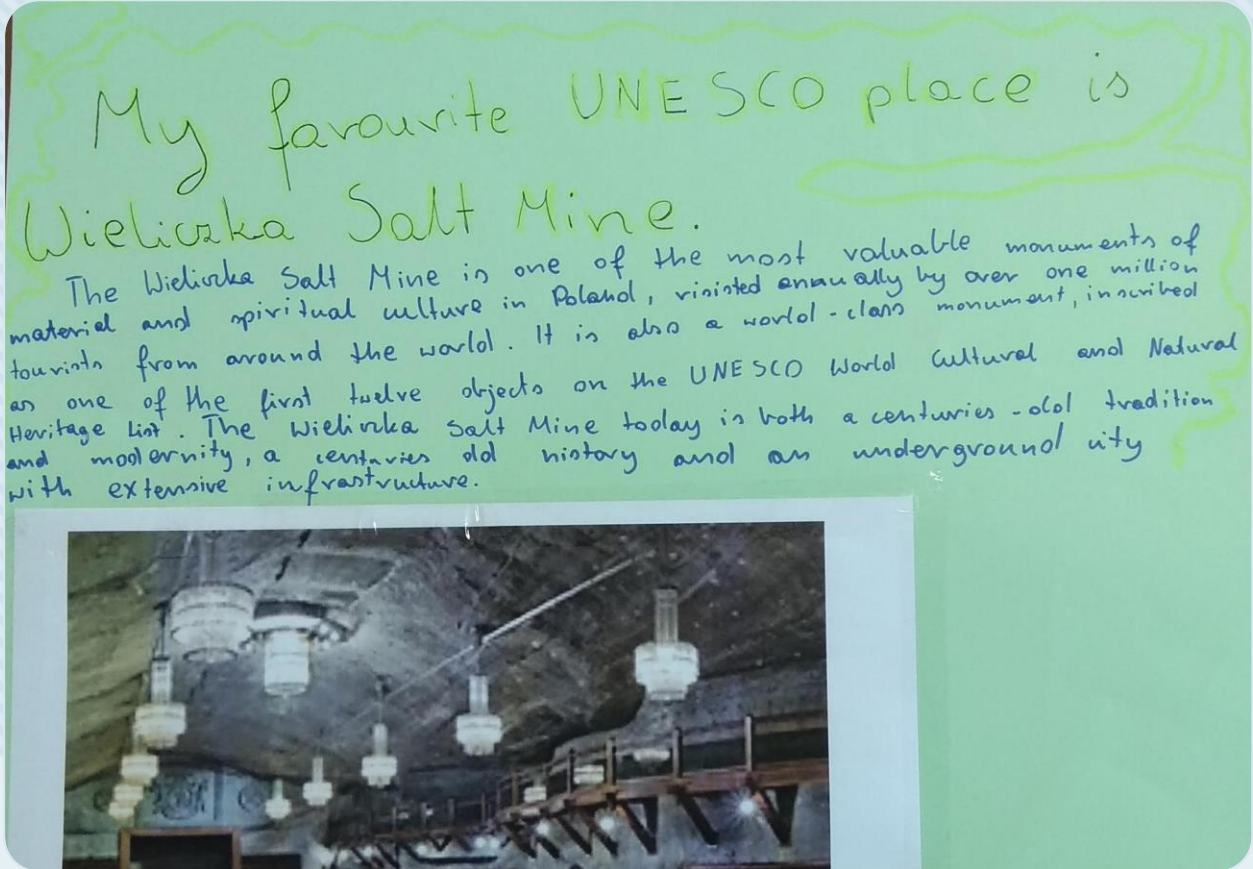 My favourite UNESCO place is
Wieliczka Salt Mine.
The Wieliczka Salt Mine is one of the most valuable monuments of
material and spiritual culture in Poland, visited annually by over one million
tourists from around the world. It is also a world-class monument, inscribed
as one of the first twelve objects on the UNESCO World Cultural and Natural
Heritage List. The Wieliczka Salt Mine today is both a centuries-old tradition
and modernity, a centuries old history and an underground city
with extensive infrastructure.